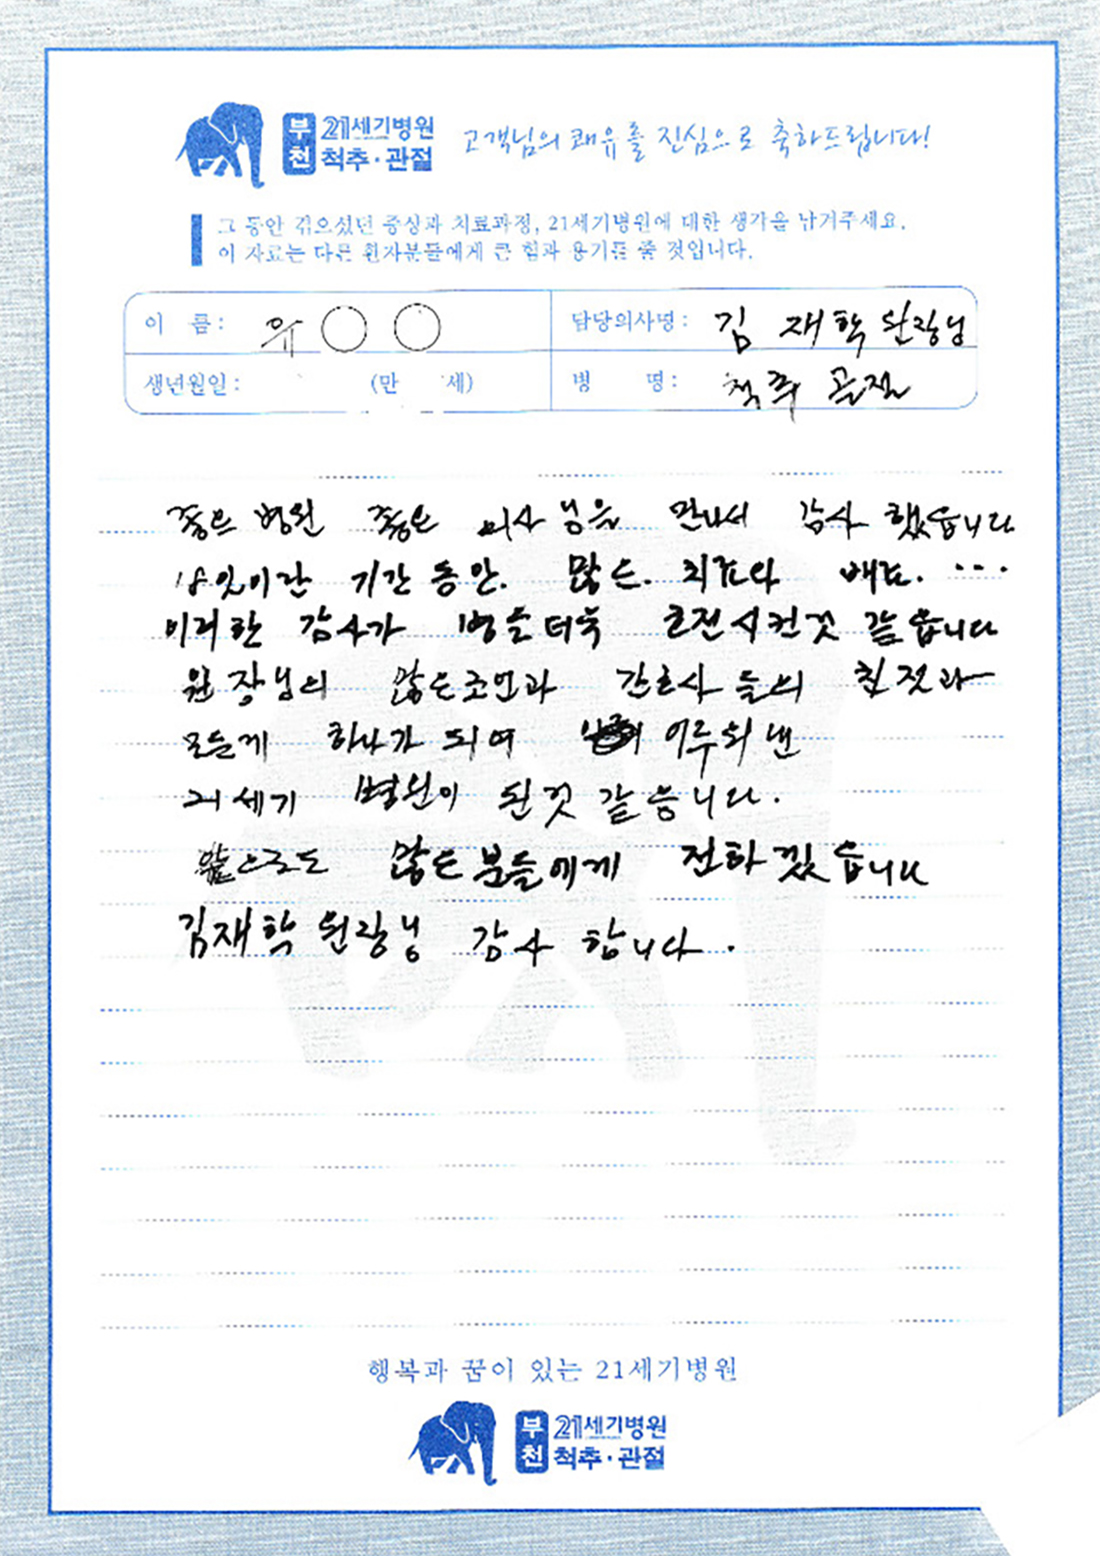 부천 21세기병원 척추·관절
고객님의 쾌유를 진심으로 축하드립니다!
그 동안 겪으셨던 증상과 치료과정, 21세기병원에 대한 생각을 남겨주세요.
이 자료는 다른 환자분들에게 큰 힘과 용기를 줄 것입니다.
이 름: 유○○ 담당의사명: 김 재학 원장님
생년월일: (만 세) 병 명: 척추 골절
좋은 병원 좋은 의사님을 만나서 감사 했습니다
18일이란 기간 동안. 많은. 치료와 배료. ...
이러한 감사가 병을 더욱 호전시킨것 같읍니다
원장님의 많은 조언과 간호사 들의 친절과
모든게 하나가 되여 이루워낸
21세기 병원이 된것 같읍니다.
앞으로도 많은 분들에게 전하겠습니다
김재학 원장님 감사 합니다.
행복과 꿈이 있는 21세기병원
부천 21세기병원 척추·관절